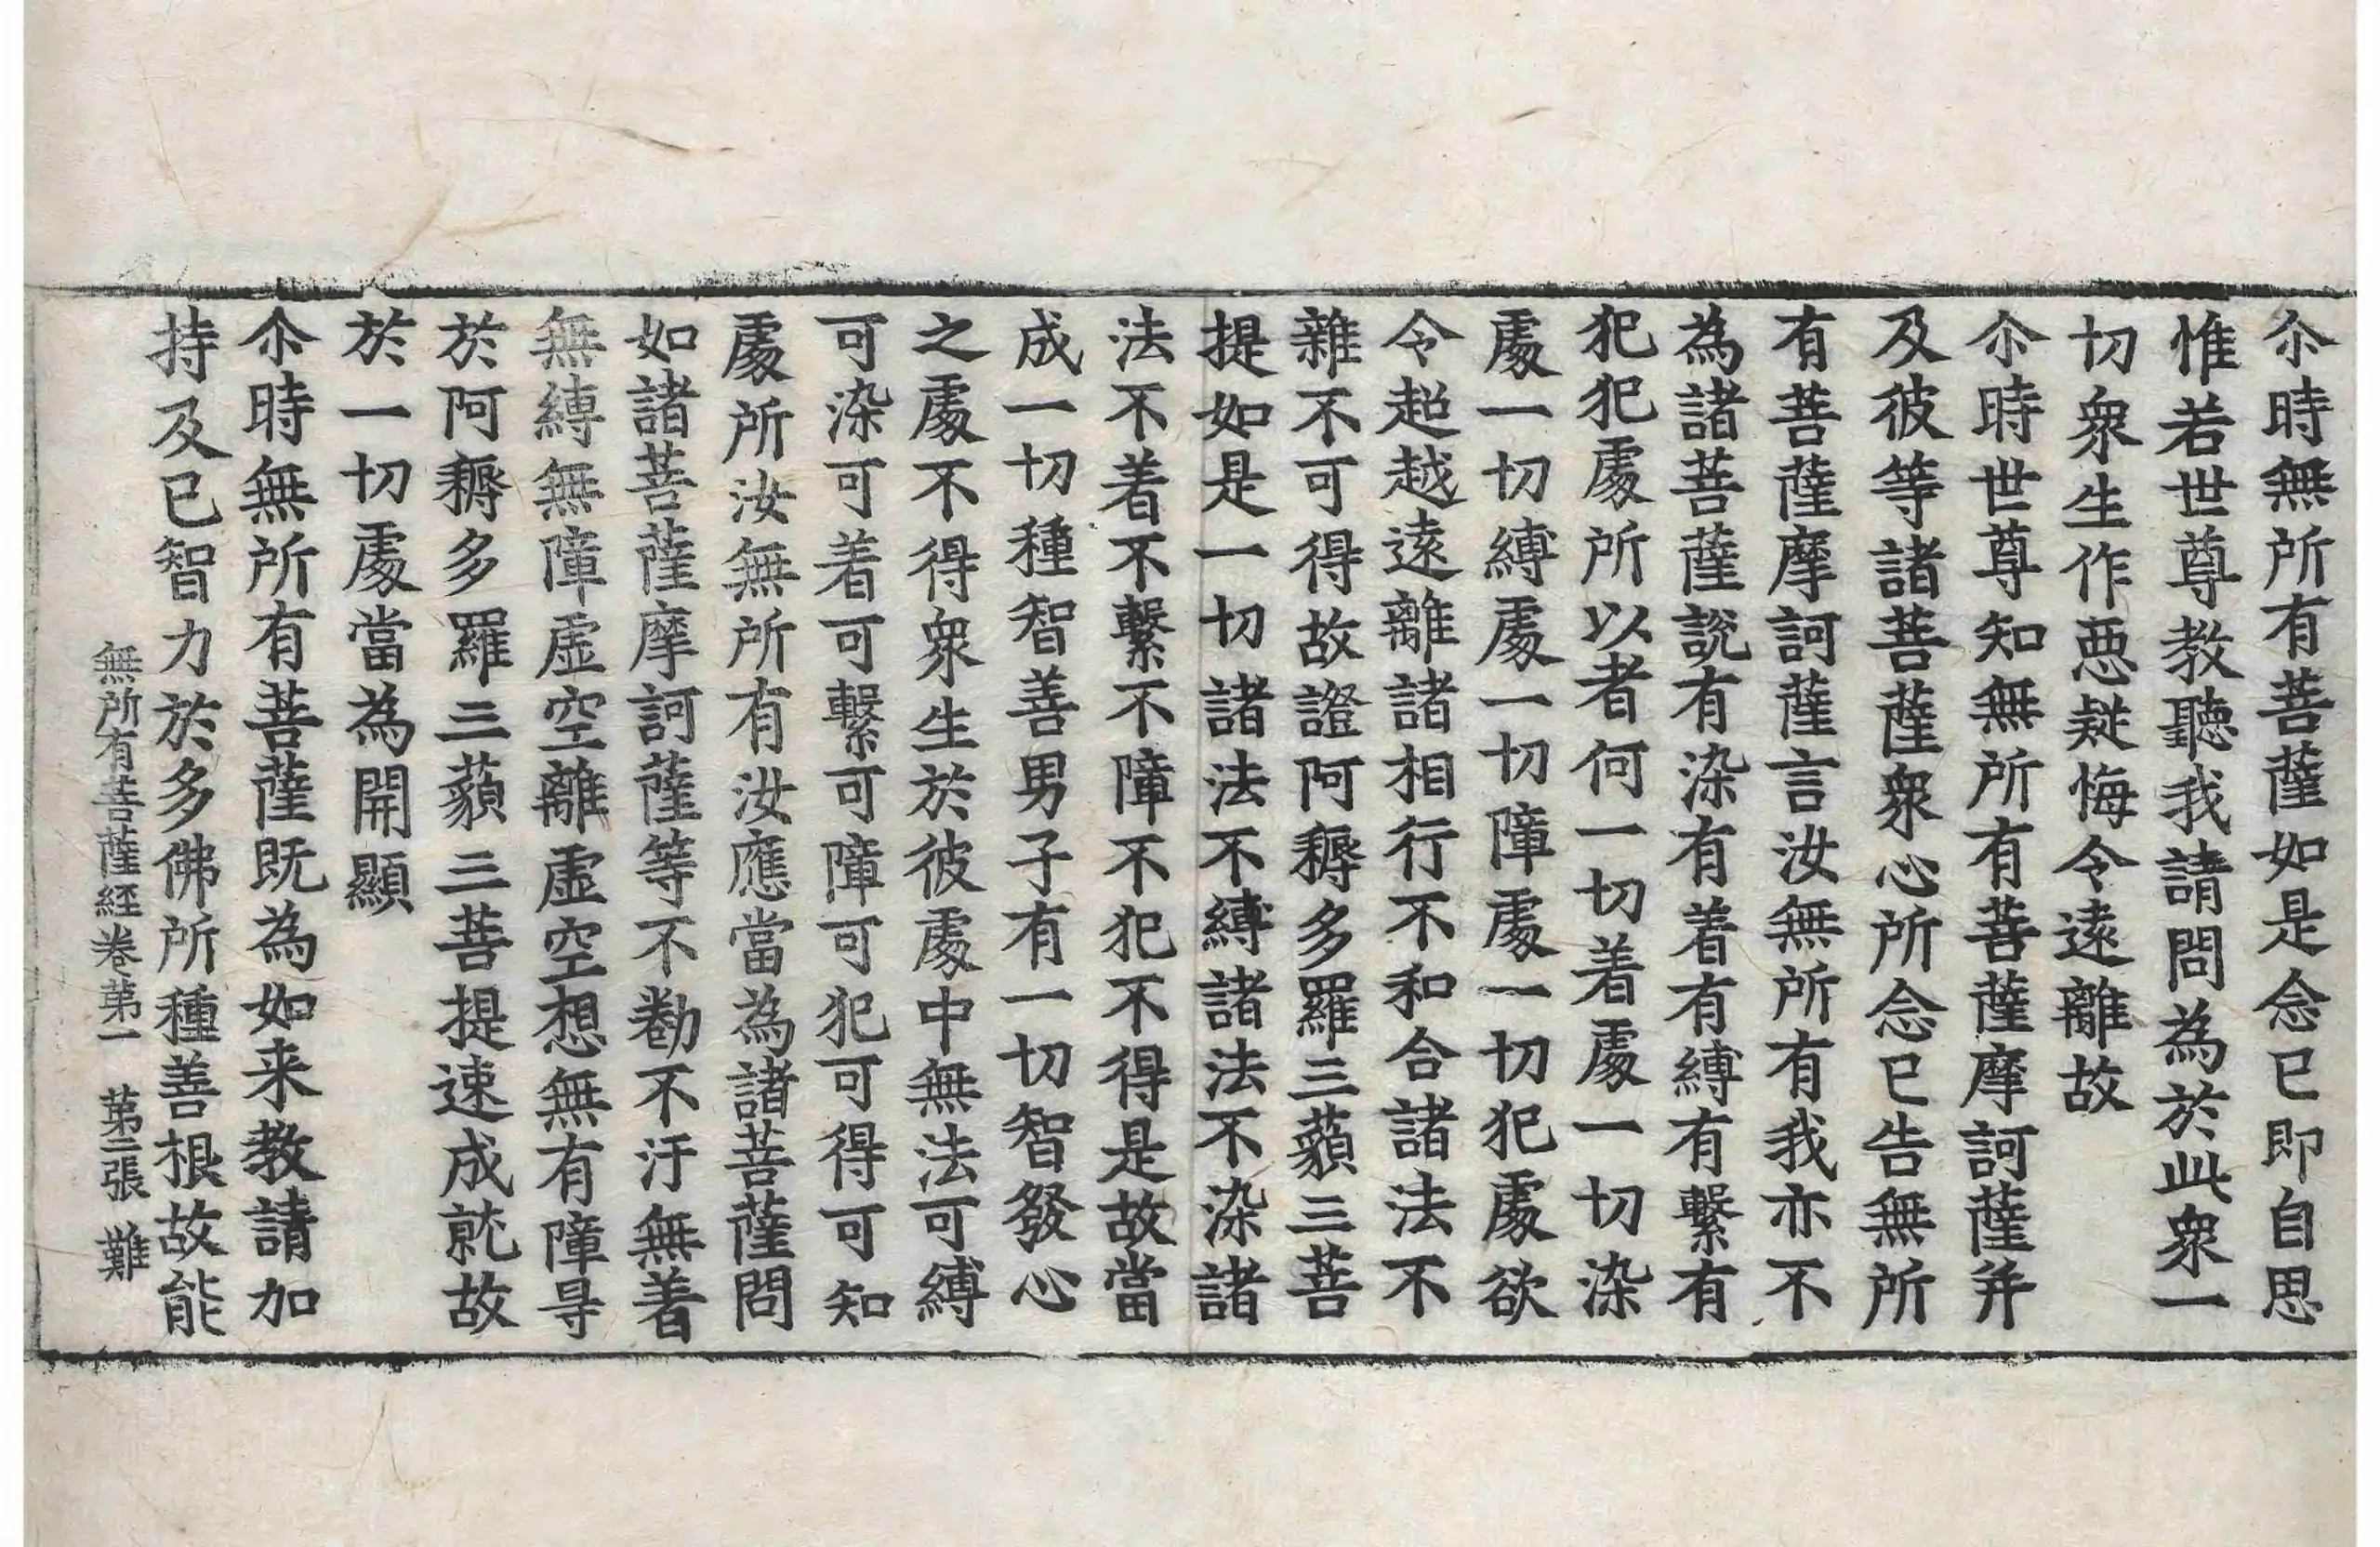 尒時無所有菩薩如是念已即自思
惟若世尊教聽我請問為於此衆一
切衆生作惡疑悔令遠離故
尒時世尊知無所有菩薩摩訶薩并
及彼等諸菩薩衆心所念已告無所
有菩薩摩訶薩言汝無所有我亦不
為諸菩薩說有染有着有縛有繫有
犯犯處所以者何一切着處一切染
處一切縛處一切障處一切犯處欲
令超越遠離諸相行不和合諸法不
雜不可得故證阿耨多羅三藐三菩
提如是一切諸法不縛諸法不染諸
法不着不繫不障不犯不得是故當
成一切種智善男子有一切智發心
之處不得衆生於彼處中無法可縛
可染可着可繫可障可犯可得可知
處所汝無所有汝應當為諸菩薩問
如諸菩薩摩訶薩等不勸不汙無著
無縛無障虛空離虛空想無有障㝵
於阿耨多羅三藐三菩提速成就故
於一切處當為開顯
尒時無所有菩薩既為如来教請加
持及已智力於多佛所種善根故能
無所有菩薩経卷苐一 苐二張 難